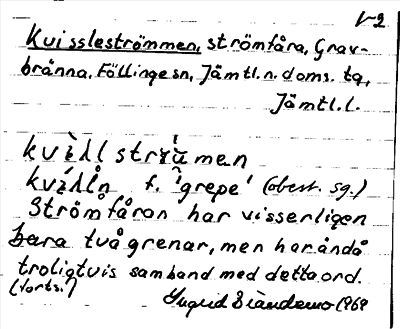 1-2
Kvissleströmmen, strömfåra, Grav-
bränna, Föllinge sn, Jämtl. n. doms. tg,
Jämtl. l.
f. 'grepe' (obest. sg.)
Strömfåran har visserligen
bara två grenar, men har ändå
troligtvis samband med detta ord.
(forts.!)
Ingrid 1969